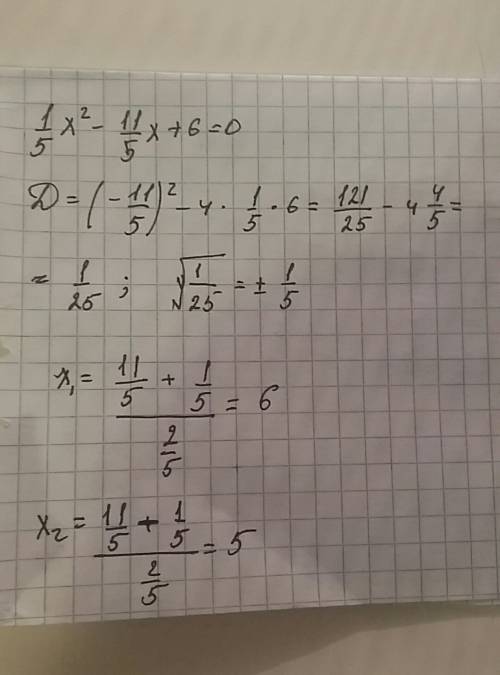 1/5 x² - 11/5 x + 6 = 0
D = (-11/5)² - 4 · 1/5 · 6 = 121/25 - 4 4/5 =
= 1/25 ; √(1/25) = ± 1/5
x₁ = (11/5 + 1/5)/(2/5) = 6
x₂ = (11/5 + 1/5)/(2/5) = 5